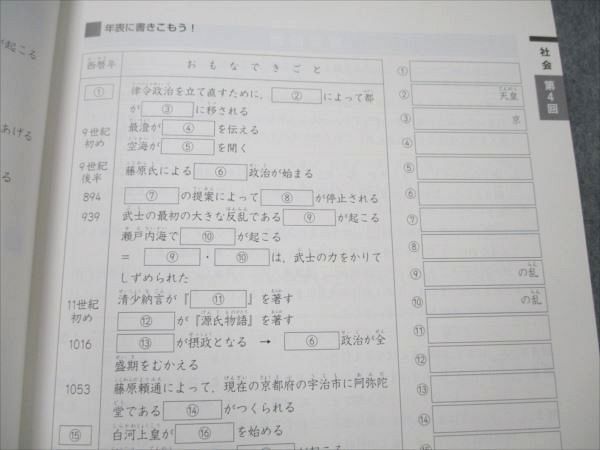 が起こる
あげる
る
年表に書きこもう！
社会
第4回
西暦年 おもなできごと
① 律令政治を立て直すために、②によって都
が③に移される
9世紀初め 最澄が④を伝える
空海が⑤を開く
9世紀後半 藤原氏による⑥政治が始まる
894 ⑦の提案によって⑧が停止される
939 武士の最初の大きな反乱である⑨が起こる
瀬戸内海で⑩が起こる
＝ ⑨・⑩は、武士の力をかりて
しずめられた
11世紀初め 清少納言が『⑪』を著す
⑫が『源氏物語』を著す
1016 ⑬が摂政となる → ⑥政治が全
盛期をむかえる
1053 藤原頼通によって、現在の京都府の宇治市に阿弥陀
堂である⑭がつくられる
⑮ 白河上皇が⑯を始める
が起こる
①
② 天皇
③ 京
④
⑤
⑥
⑦
⑧
⑨ の乱
⑩ の乱
⑪
⑫
⑬
⑭
⑮